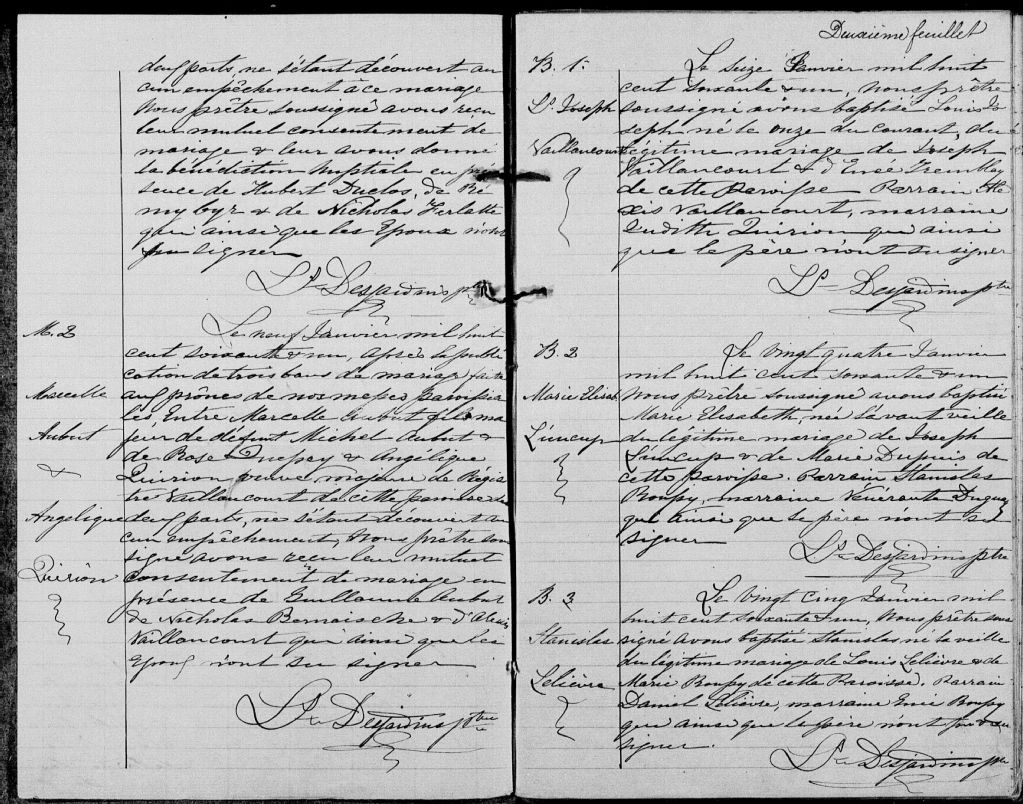 deux parts, ne s'étant découvert au
cun empêchement à ce mariage
Nous prêtre soussigné avons reçu
leur mutuel consentement de
mariage & leur avons donné
la bénédiction nuptiale en pré
sence de Hubert Duclos, de Ré
my byr & de Nicholas Ferlatte
qui ainsi que les Epoux n'ont
pu signer
Ls Desjardins ptre
M. 2
Marcelle
Aubut
&
Angelique
Quirion
Le neuf Janvier mil huit
cent soixante & un, après la publi
cation de trois bans de mariage faite
aux prônes de nos messes paroissia
les, Entre Marcelle Aubut fils ma
jeur de défunt Michel Aubut &
de Rose Dupey & Angélique
Quirion veuve majeure de Régis
Vaillancourt de cette paroisse de
deux parts, ne s'étant découvert au
cun empêchement, Nous prêtre sous
signé avons reçu leur mutuel
consentement de mariage en
présence de Guillaume Aubut
de Nicholas Bernaische & d'Alexis
Vaillancourt qui ainsi que les
Epoux n'ont su signer
Ls Desjardins ptre
Deuxième feuillet
B. 1.
Ls Joseph
Vaillancourt
Le seize Janvier mil huit
cent soixante & un, Nous prêtre
soussigné avons baptisé Louis Jo
seph né le onze du courant, du
légitime mariage de Joseph
Vaillancourt & d'Enée Tremblay
de cette Paroisse Parrain Ale
xis Vaillancourt, marraine
Judith Quirion qui ainsi
que le père n'ont su signer
Ls Desjardins ptre
B. 2
Marie Elisab
L'eucup
Le vingt quatre Janvier
mil huit cent soixante & un
Nous prêtre soussigné avons baptisé
Marie Elisabeth, née l'avant veille
du légitime mariage de Joseph
& de Marie Dupuis de
cette paroisse. Parrain Stanislas
Roupy, marraine Vénérante Duguay
qui ainsi que le père n'ont su
signer
Ls Desjardins ptre
B. 3
Stanislas
Lelièvre
Le vingt cinq Janvier mil
huit cent soixante & un, Nous prêtre sous
signé avons baptisé Stanislas né la veille
du légitime mariage de Louis Lelièvre & de
Marie Roupy de cette Paroisse. Parrain
Daniel Lelièvre, marraine Enée Roupy
qui ainsi que le père n'ont su
signer.
Ls Desjardins ptre